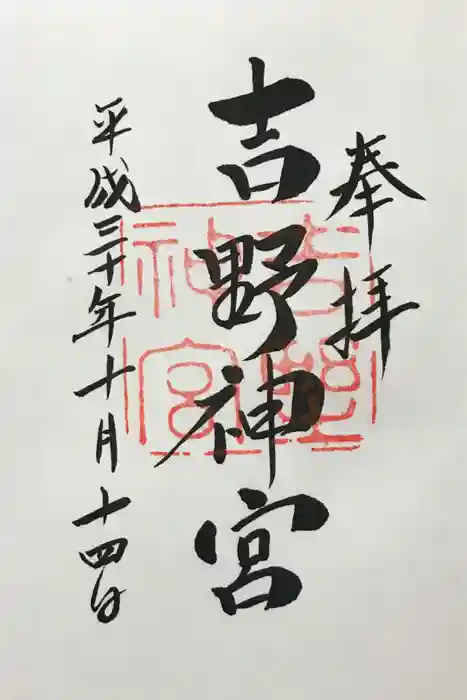 奉拝
吉野神宮
平成三十年十月十四日
吉野
神宮